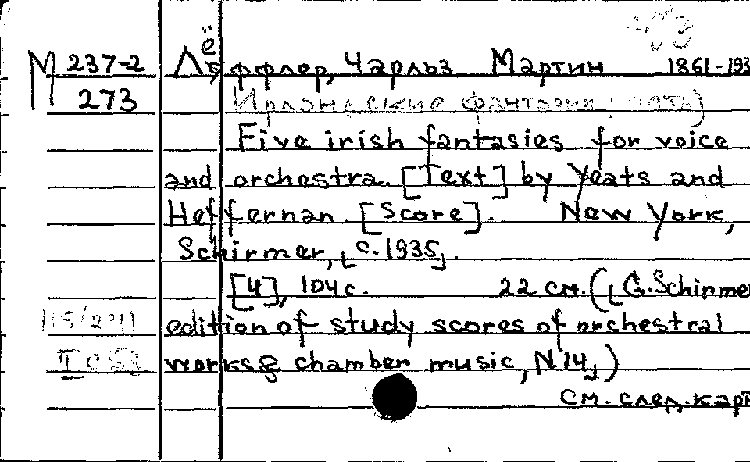 М 237-2
273
Лёффлер, Чарльз Мартин 1861-193
Ирландские фантазии
Five irish fantasies for voice
and orchestra. [Text] by Yeats and
Heffernan [Score]. New York,
Schirmer, [c.1935].
[4], 104 с. 22 см. ([G. Schirmer
edition of study scores of orchestral
works & chamber music, N 14])
см. след. карт